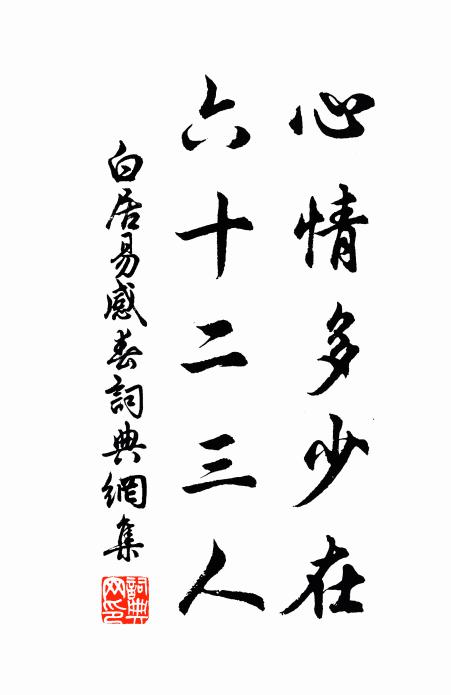 心情多少在
六十二三人
白居易感春詞典網集
詞典
网印